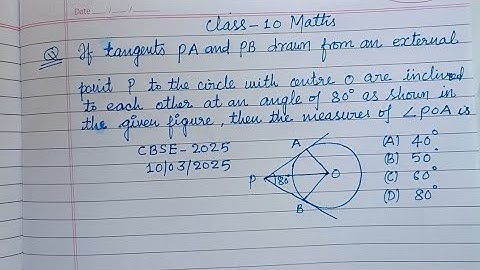 Date
Class-10 Maths
Q If tangents PA and PB drawn from an external
point P to the circle with centre O are inclined
to each other at an angle of 80° as shown in
the given figure, then the measures of ∠POA is
CBSE-2025
10/03/2025
(A) 40°
(B) 50°
(C) 60°
(D) 80°
A
P 80° O
B